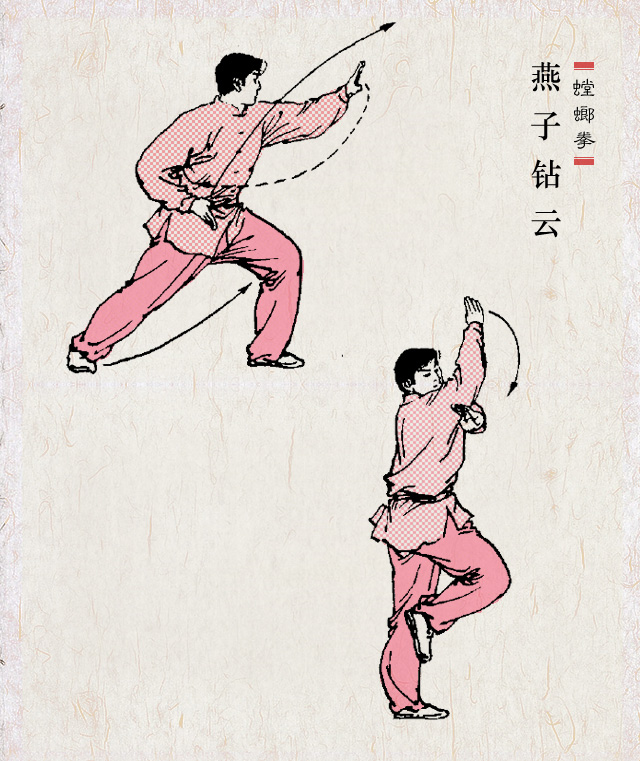 螳螂拳
燕子钻云